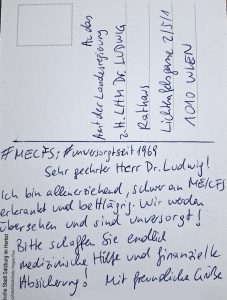 An das
Amt der Landesregierung
z.H. LHM Dr. LUDWIG
Rathaus
Lichtenfelsgasse 2/5/1
1010 WIEN
#MECFS; #unversorgtseit1969
Sehr geehrter Herr Dr. Ludwig!
Ich bin alleinerziehend, schwer an ME/CFS
erkrankt und bettlägrig. Wir werden
übersehen und sind unversorgt!
Bitte schaffen Sie endlich
medizinische Hilfe und finanzielle
Absicherung. Mit freundliche Grüße
Stadt Salzburg im Herbst